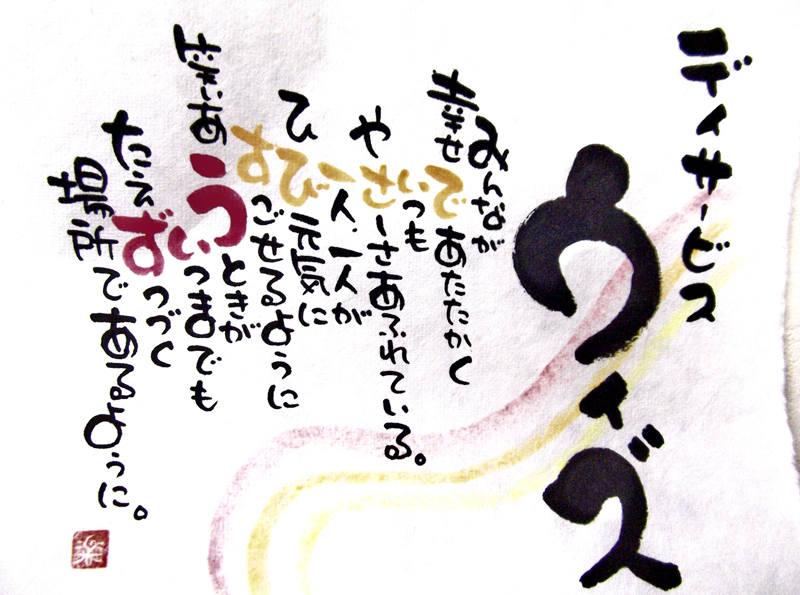 ディサービス
ウィズ
みんなが
幸せであたたかく
いつも
やさしさあふれている。
一人一人が
ひび元気に
すごせるように
あうときが
いつまでも
たえずつづく
場所であるように。